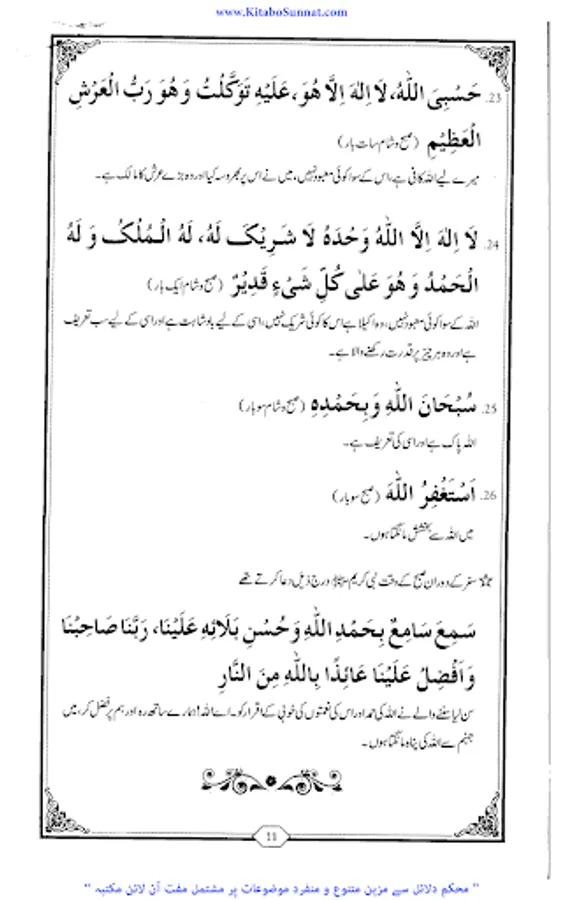 www.KitaboSunnat.com
23. حَسْبِیَ اللّٰہُ، لَا اِلٰہَ اِلَّا ھُوَ، عَلَیْہِ تَوَکَّلْتُ وَ ھُوَ رَبُّ الْعَرْشِ
الْعَظِیْمِ (صبح و شام سات بار)
میرے لیے اللہ کافی ہے، اس کے سوا کوئی معبود نہیں، میں نے اس پر بھروسہ کیا اور وہ بڑے عرش کا مالک ہے۔
24. لَا اِلٰہَ اِلَّا اللّٰہُ وَحْدَہُ لَا شَرِیْکَ لَہُ، لَہُ الْمُلْکُ وَ لَہُ
الْحَمْدُ وَ ھُوَ عَلٰی کُلِّ شَیْءٍ قَدِیْرٌ (صبح و شام ایک بار)
اللہ کے سوا کوئی معبود نہیں، وہ اکیلا ہے اس کا کوئی شریک نہیں، اسی کے لیے بادشاہت ہے اور اسی کے لیے سب تعریف
ہے اور وہ ہر چیز پر قدرت رکھنے والا ہے۔
25. سُبْحَانَ اللّٰہِ وَبِحَمْدِہِ (صبح و شام سو بار)
اللہ پاک ہے اور اسی کی تعریف ہے۔
26. اَسْتَغْفِرُ اللّٰہَ (صبح سو بار)
میں اللہ سے بخشش مانگتا ہوں۔
☆ سفر کے دوران صبح کے وقت نبی کریم ﷺ درج ذیل دعا کرتے تھے
سَمِعَ سَامِعٌ بِحَمْدِ اللّٰہِ وَ حُسْنِ بَلَائِہِ عَلَیْنَا، رَبَّنَا صَاحِبْنَا
وَ اَفْضِلْ عَلَیْنَا عَائِذًا بِاللّٰہِ مِنَ النَّارِ
سن لیا سننے والے نے اللہ کی حمد اور اس کی نعمتوں کی خوبی کے اقرار کو۔ اے اللہ! ہمارے ساتھ رہ اور ہم پر فضل کر، میں
جہنم سے اللہ کی پناہ مانگتا ہوں۔
11
" محکم دلائل سے مزین متنوع و منفرد موضوعات پر مشتمل مفت آن لائن مکتبہ "